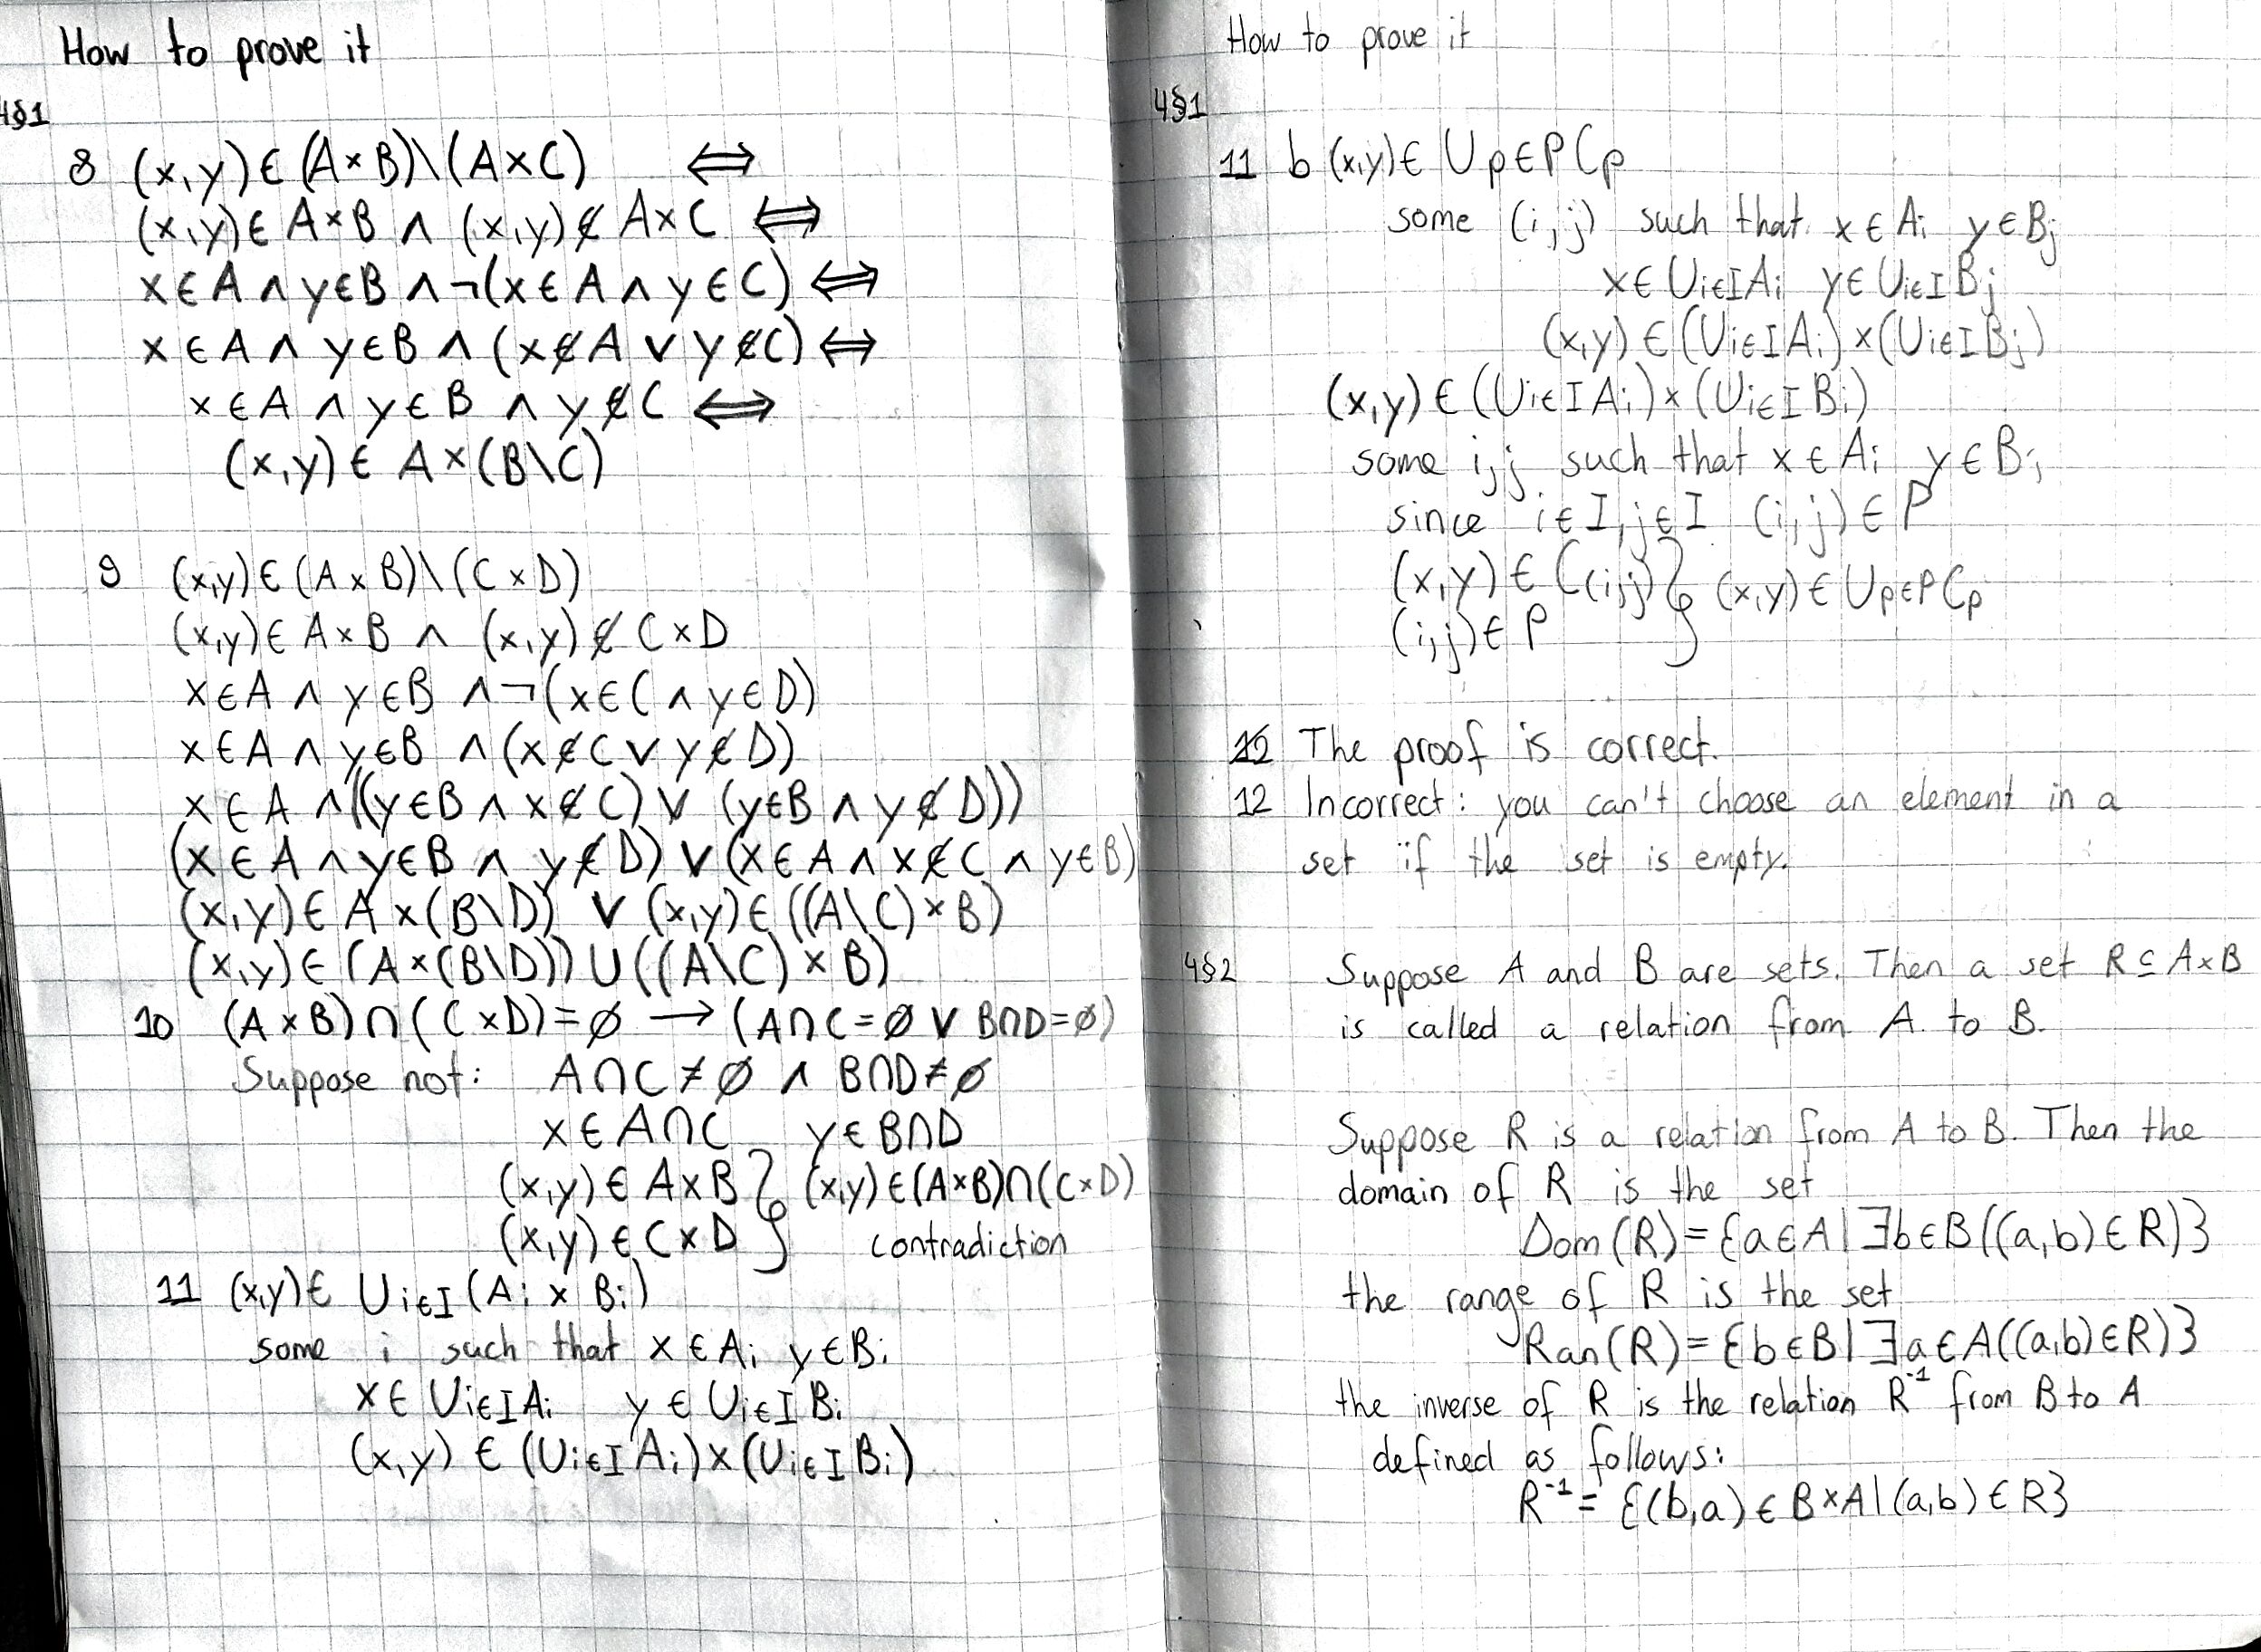 How to prove it
4§1
8 (x,y)∈(A×B)\(A×C) ⟺
(x,y)∈ A×B ∧ (x,y)∉ A×C ⟺
x∈A ∧ y∈B ∧ ¬(x∈A ∧ y∈C) ⟺
x∈A ∧ y∈B ∧ (x∉A ∨ y∉C) ⟺
x∈A ∧ y∈B ∧ y∉C ⟺
(x,y)∈ A×(B\C)
9 (x,y)∈(A×B)\(C×D)
(x,y)∈ A×B ∧ (x,y)∉ C×D
x∈A ∧ y∈B ∧ ¬(x∈C ∧ y∈D)
x∈A ∧ y∈B ∧ (x∉C ∨ y∉D)
x∈A ∧((y∈B ∧ x∉C) ∨ (y∈B ∧ y∉D))
(x∈A ∧ y∈B ∧ y∉D) ∨ (x∈A ∧ x∉C ∧ y∈B)
(x,y)∈ A×(B\D) ∨ (x,y)∈((A\C)×B)
(x,y)∈(A×(B\D))∪((A\C)×B)
10 (A×B)∩(C×D)=∅ → (A∩C=∅ ∨ B∩D=∅)
Suppose not: A∩C≠∅ ∧ B∩D≠∅
x∈A∩C y∈B∩D
(x,y)∈ A×B } (x,y)∈(A×B)∩(C×D)
(x,y)∈C×D } contradiction
11 (x,y)∈ ∪i∈I(Ai × Bi)
some i such that x∈Ai y∈Bi
x∈ ∪i∈I Ai y∈ ∪i∈I Bi
(x,y) ∈ (∪i∈I Ai)×(∪i∈I Bi)
How to prove it
4§1
11 b (x,y)∈ ∪p∈P Cp
some (i,j) such that x∈Ai y∈Bj
x∈ ∪i∈I Ai y∈ ∪i∈I Bj
(x,y)∈(∪i∈I Ai)×(∪i∈I Bj)
(x,y)∈(∪i∈I Ai)×(∪i∈I Bi)
some i,j such that x∈Ai y∈Bj
since i∈I, j∈I (i,j)∈P
(x,y)∈C(i,j) } (x,y)∈ ∪p∈P Cp
(i,j)∈P
12 The proof is correct.
12 Incorrect: you can't choose an element in a
set if the set is empty.
4§2 Suppose A and B are sets. Then a set R⊆A×B
is called a relation from A to B.
Suppose R is a relation from A to B. Then the
domain of R is the set
Dom(R)={a∈A|∃b∈B((a,b)∈R)}
the range of R is the set
Ran(R)={b∈B|∃a∈A((a,b)∈R)}
the inverse of R is the relation R⁻¹ from B to A
defined as follows:
R⁻¹= {(b,a)∈B×A|(a,b)∈R}